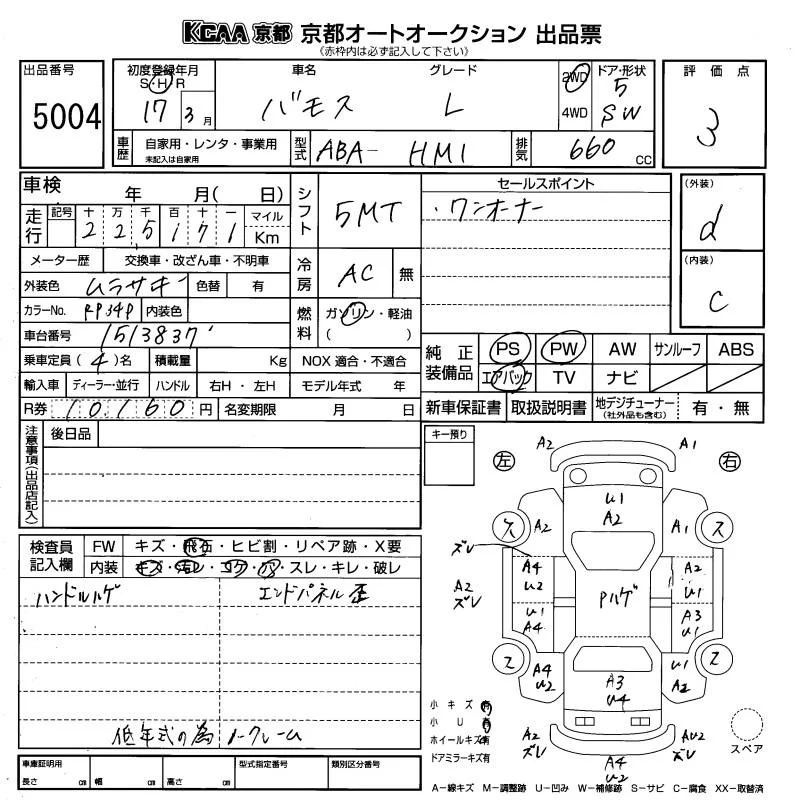 KCAA 京都 京都オートオークション 出品票
(赤枠内は必ず記入して下さい)
出品番号
5004
初度登録年月
S・H・R
17 3月
車名
バモス
グレード
L
2WD
4WD
ドア・形状
5
SW
評価点
3
車歴
自家用・レンタ・事業用
未記入は自家用
型式
ABA- HM1
排気
660 cc
車検 年 月( 日)
走行
記号 十 万 千 百 十 一
2 2 5 1 7 1
マイル
Km
シフト
5MT
セールスポイント
・ワンオーナー
(外装)
d
(内装)
c
メーター歴 交換車・改ざん車・不明車
外装色 ムラサキ 色替 有
冷房
AC 無
カラーNo. RP34P 内装色
燃料
ガソリン・軽油
( )
車台番号 1513837
乗車定員 (4)名 積載量 Kg NOX 適合・不適合
輸入車 ディーラー・並行 ハンドル 右H・左H モデル年式 年
R券 10,160円 名変期限 月 日
純正装備品
PS PW AW サンルーフ ABS
エアバック TV ナビ
新車保証書 取扱説明書 地デジチューナー
(社外品も含む)
有・無
注意事項(出品店記入)
後日品
キー預り
検査員記入欄
FW キズ・飛石・ヒビ割・リペア跡・X要
内装 キズ・汚レ・コゲ・穴・スレ・キレ・破レ
ハンドルハゲ
エンドパネル歪
低年式の為ノークレーム
左 右
A2 A1
U1
A2
ス A2 A1 ス
ズレ
A4
U2
A2
U1
A2
ズレ
Pハゲ
U1
A4
A3
U1
ス A4
U2
U1
A2
ス
A3
U4
A2
ズレ
AU2
ズレ
A4
U2
小キズ 有
小U 有
ホイールキズ 有
ドアミラーキズ有
スペア
車庫証明用
長さ cm 幅 cm 高さ cm
型式指定番号
類別区分番号
A－線キズ M－調整跡 U－凹み W－補修跡 S－サビ C－腐食 XX－取替済